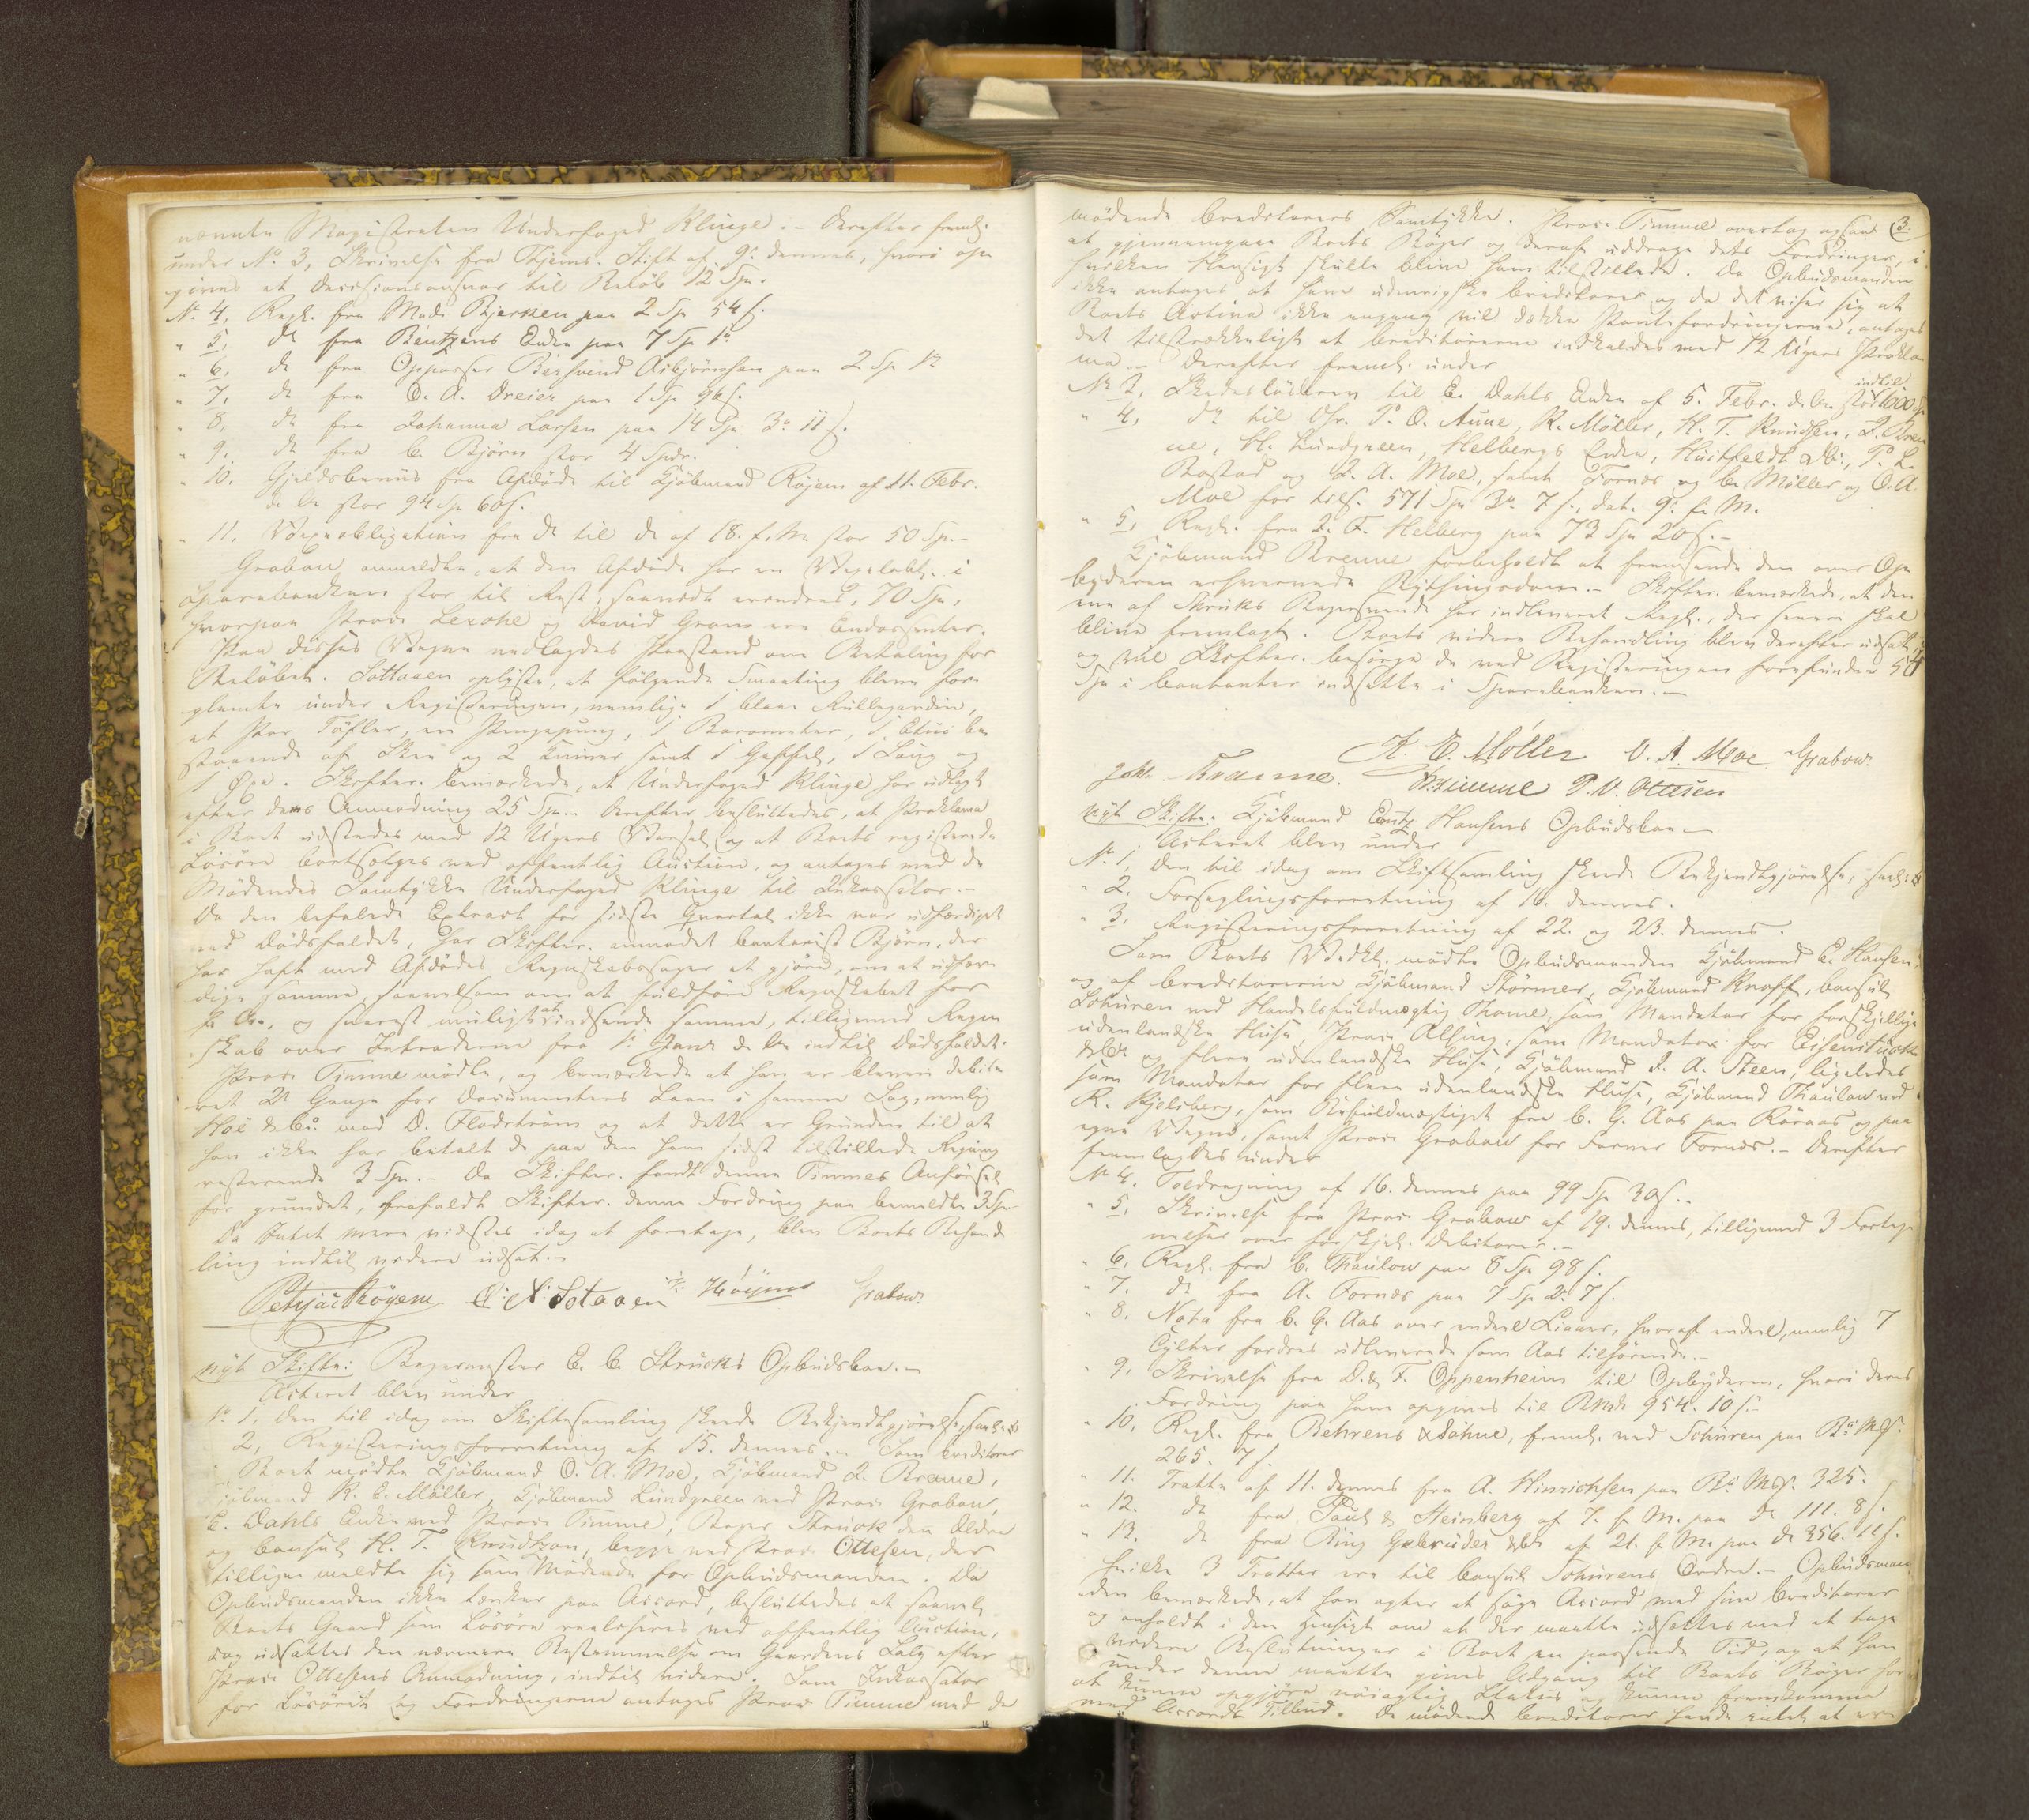 nævnte Magistraten Underfoged Klinge. – Derefter freml.
under No 3, Skrivelse fra Thjems. Stift af 9de dennes, hvori op
gives at Decisionsansvar til Beløb 12 Spd.
No 4, Regn. fra Mad. Bjerken paa 2 Sp 54 s.
" 5, do fra Bentzens Enke paa 7 Sp 1 #
" 6, do fra Oppasser Bersvend Asbjørnsen paa 2 Sp 1 #
" 7, do fra O. A. Dreier paa 1 Sp 96 s.
" 8, do fra Johanna Larsen paa 14 Spd 3 # 11 s.
" 9. do fra C. Bjørn stor 4 Spdr.
" 10. Gjeldsbeviis fra Afdøde til Kjøbmand Røyem af 11. Febr.
d. A. stor 94 Spd 60 s.
" 11. Vexelobligation fra do til do af 18. f. M. stor 50 Sp. –
Grabow anmeldte, at den Afdøde har en Vexelobl. i
Sparebanken stor til Rest, saavidt erindres, 70 Spd,
hvorpaa Proc. Lexohe og David Gram ere Endossenter.
Paa disses Vegne nedlagdes Paastand om Betaling for
Beløbet. Sottaaen oplyste, at følgende Smaating bleve for-
glemte under Registeringen, nemlig 1 blaae Rullegardin,
et Par Tøfler, en Pengepung, 1 Barometer, 1 Etui be
staaende af Skee og 2 Knive samt 1 Gaffel, 1 Saug og
1 Øxe. Skifter. bemærkede, at Underfoged Klinge har udlagt
efter dens Anmodning 25 Spd. – Derefter besluttedes, at Proklama
i Boet udstedes med 12 Ugers Varsel og at Boets registerede
Løsøre bortsælges ved offentlig Auction, og antages med de
Mødendes Samtykke Underfoged Klinge til Inkassator. –
Da den befalede Extract for sidste Qvartal ikke var udfærdiget
ved Dødsfaldet, har Skifter. anmodet Cantorist Bjørn, der
har haft med Afdødes Regnskabssager at gjøre, om at udfær-
dige samme, saavelsom om at fuldføre Regnskabet for
f. A., og snarest muligt at indsende samme, tilligemed Regn
skab over Intraderne fra 1. Janr d. A. indtil Dødsfaldet.
Proc. Timme mødte, og bemærkede at han er bleven debite
ret 2de Gange for Documenters Laan i samme Sag, nemlig
Høe & Co. mod D. Flodström og at dette er Grunden til at
han ikke har betalt de paa den ham sidst tilstillede Regning
resterende 3 Spd. – Da Skifter. fandt denne Timmes Anførsel
for grundet, frafaldt Skifter. denne Fordring paa bemeldte 3 Sp
Da Intet mere vidstes idag at foretage, blev Boets Behand
ling indtil videre udsat. –
Petrjac Röyem C. N. Sotaaen Høyem Grabow.
nyt Skifte: Bagermester E. C. Strücks Opbudsboe. –
Acteret blev under
No 1, den til idag om Skiftesamling skeede Bekjendtgjørelse,
2, Registeringsforretning af 15. dennes. – Som Creditorer
i Boet mødte Kjøbmand O. A. Moe, Kjøbmand J. Brenne,
Kjøbmand K. E. Møller, Kjøbmand Lundgreen ved Proc. Grabow,
E. Dahls Enke ved Proc. Timme, Bager Struck den Ældre
og Consul H. T. Knudtzon, begge ved Proc. Ottesen, der
tillige meldte sig som Mødende for Opbudsmanden. Da
Opbudsmanden ikke tænker paa Accord, besluttedes at saavel
Boets Gaard som Løsøre realiseres ved offentlig Auction,
dog udsattes den nærmere Bestemmelse om Gaardens Salg efter
Proc. Ottesens Anmodning, indtil videre. Som Inkassator
for Løsøret og Fordringerne antages Proc. Timme med de
3.
mødende Creditorers Samtykke. Proc. Timme overtog ogsaa
at gjennemgaae Boets Bøger og deraf uddrage dets Fordringer, i
hvilken Hensigt skulle blive ham tilstillede. Da Opbudsmanden
ikke antages at have udenrigske Creditorer og da det viser sig at
Boets Activa ikke engang vil dække Pantefordringerne, antages
det tilstrækkeligt at Creditorerne indkaldes med 12 Ugers Prokla
ma – Derefter freml. under
indtil
No 3, Skadesløsbrev til E. Dahls Enke af 5. Febr. d. A. stor 1600 Sp
" 4, do til Hr. P. O. Aune, K. Möller, H. T. Knudsen, J. Bren
ne, H. Lundgreen, Helbergs Enke, Huitfeldt & Co., P. L.
Bostad og O. A. Moe, samt Fornæs og C. Møller og O. A.
Moe for tils. 571 Spd 3 # 7 s., dat. 9de f. M.
" 5, Regn. fra J. F. Helberg paa 73 Spd 20 s. –
Kjøbmand Brenne forbeholdt at fremsende den over Op
byderen erhvervede Rettergangsdom. – Skifter. bemærkede, at den
ene af Strucks Bagersvende har indleveret Regn., der senere skal
blive fremlagt. Boets videre Behandling blev derefter udsat,
og vil Skifter. besørge de ved Registeringen forefundne 54
Spd i Contanter indsatte i Sparebanken. –
K. E. Möller O. A. Moe Grabow.
Joh. Brænne. Timme P. V. Ottesen
nyt Skifte. Kjøbmand Entz Hansens Opbudsboe –
Acteret blev under
No 1, den til idag om Skiftesamling skeede Bekjendtgjørelse,
" 2. Forseglingsforretning af 16. dennes.
" 3, Registeringsforretning af 22. og 23. dennes.
Som Boets Vedk. mødte Opbudsmanden Kjøbmand E. Hansen,
og af Creditorerne Kjøbmand Störmer, Kjøbmand Knoff, Consul
Schüren ved Handelsfuldmægtig Thome, som Mandatar for forskjellige
udenlandske Huse, Proc. Alsing, som Mandatar for Eisenstuck
& Co og flere udenlandske Huse, Kjøbmand J. A. Steen, ligeledes
som Mandatar for flere udenlandske Huse, Kjøbmand Thaulow ved
K. Kjelsberg, som Befuldmægtiget fra C. G. Aas paa Röraas og paa
egne Vegne, samt Proc. Grabow for Farver Fornæs. – Derefter
fremlagdes under
No 4. Toldregning af 16. dennes paa 99 Sp 30 s. –
" 5, Skrivelse fra Proc. Grabow af 19. dennes, tilligemed 3 Forteg
nelser over forskjel. Debitorer. –
" 6, Regn. fra C. Thaulow paa 8 Sp 98 s.
" 7. do fra A. Fornæs paa 7 Sp 2 # 7 s.
" 8. Nota fra C. G. Aas over endeel Liaaer, hvoraf endeel, nemlig 7
Cylter fordres udleverede som Aas tilhørende. –
" 9, Skrivelse fra D. & F. Oppenheim til Opbyderen, hvori deres
Fordring paa ham opgives til Bmk 954. 10 s. –
" 10, Regn. fra Behrens & Söhne, freml. ved Schüren paa Bo Mk
265. 7 s.
" 11. Tratte af 11. dennes fra A. Hinrichsen paa Bo Mk 325.
" 12. do fra Paul & Steinberg af 7. f. M. paa do 111. 8 s.
" 13. do fra Bing Gebrüder & Co af 21. f. M. paa do 356. 11 s.
hvilke 3 Tratter ere til Consul Schürens Ordre. – Opbudsman
den bemærkede, at han agter at søge Accord med sine Creditorer
og anholdt i den Hensigt om at der maatte udsættes med at tage
videre Beslutninger i Boet en passende Tid, og at han
under denne maatte gives Adgang til Boets Bøger for
at kunne opgjøre nøiagtig Status og kunne fremkomme
med Accords Tilbud. De mødende Creditorer havde intet at